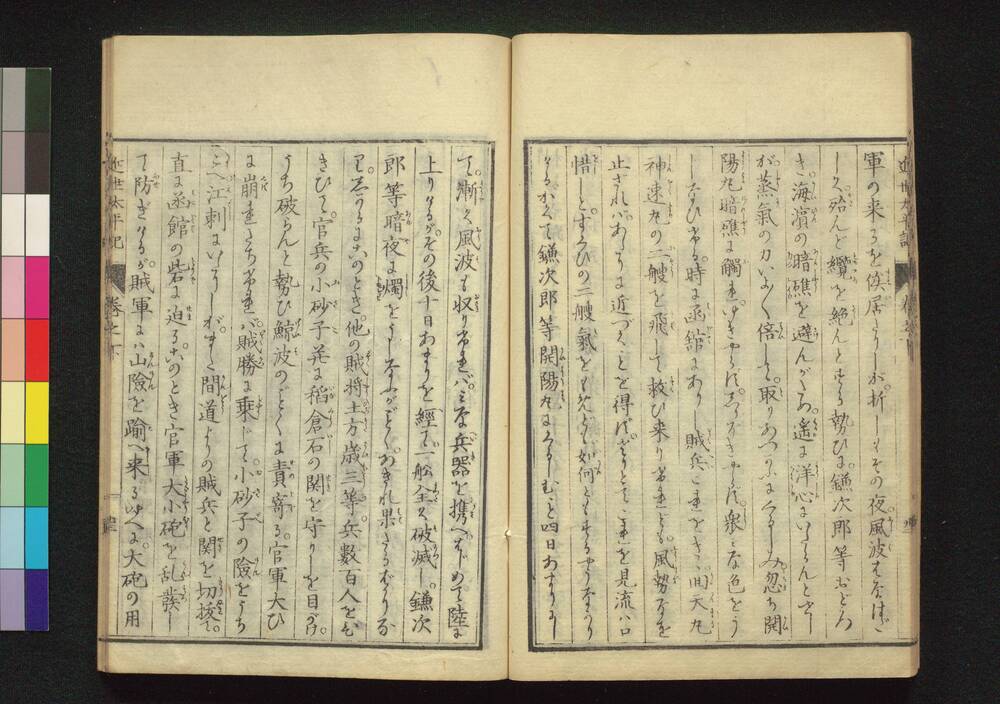 近世太平記
軍の来るを俟居たりしが。折しもその夜風波はなはだ
しく殆んど纜を絶んとする勢ひに。鎌次郎等おどろ
き海濱の暗礁を避んがため。遙に洋心にいたらんとせし
が蒸氣の力いよ〳〵倍して。取りあつかふにくるしみ忽ち開
陽丸暗礁に觸れ。ゆきやらず。しりぞきやらず。衆みな色をう
しなひける。時に函舘にありし賊兵これをきゝ回天丸
神速丸の二艘を飛して救ひ来りけれども。風勢なを
止ざれバ。あたりに近づくことを得ず。これを見流ハ口
惜しと。すくひの二艘氣をもめども如何ともするやうなかり
ける。かくて鎌次郎等開陽丸にくるしむこと四日あまりに
て。漸く風波も収りければ。ミな兵器を携へはじめて陸に
上りけるが。その後十日あまりを經て。一舩全く破滅し。鎌次
郎等暗夜に燭をうしなふがごとく。あきれ果たるばかりな
り。しかるにこのとき。他の賊将土方歳三等。兵数百人をひ
きひて。官兵の小砂子并に稻倉石の関を守りしを目がけ。
うち破らんと勢ひ鯨波のごとくに責寄る。官軍大ひ
に崩れたちければ。賊勝に乗じて。小砂子の險をうち
こへ江刺にいたりしが。また間道よりの賊兵と関を切拔て。
直に函館の砦に迫る。このとき官軍大小砲を乱發し
て防ぎけるが。賊軍にハ山險を踰へ来るゆへに。大砲の用
近世太平記 巻之下